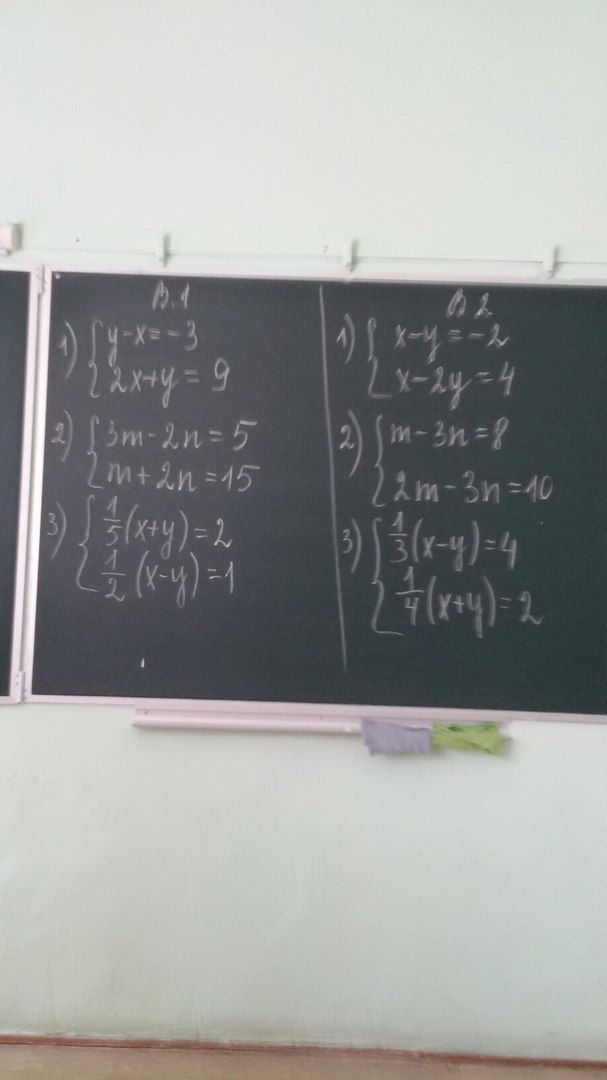 В.1
1) { y-x=-3
2x+y=9
2) { 3m-2n=5
m+2n=15
3) { 1/5(x+y)=2
1/2(x-y)=1
В 2
1) { x-y=-2
x-2y=4
2) { m-3n=8
2m-3n=10
3) { 1/3(x-y)=4
1/4(x+y)=2